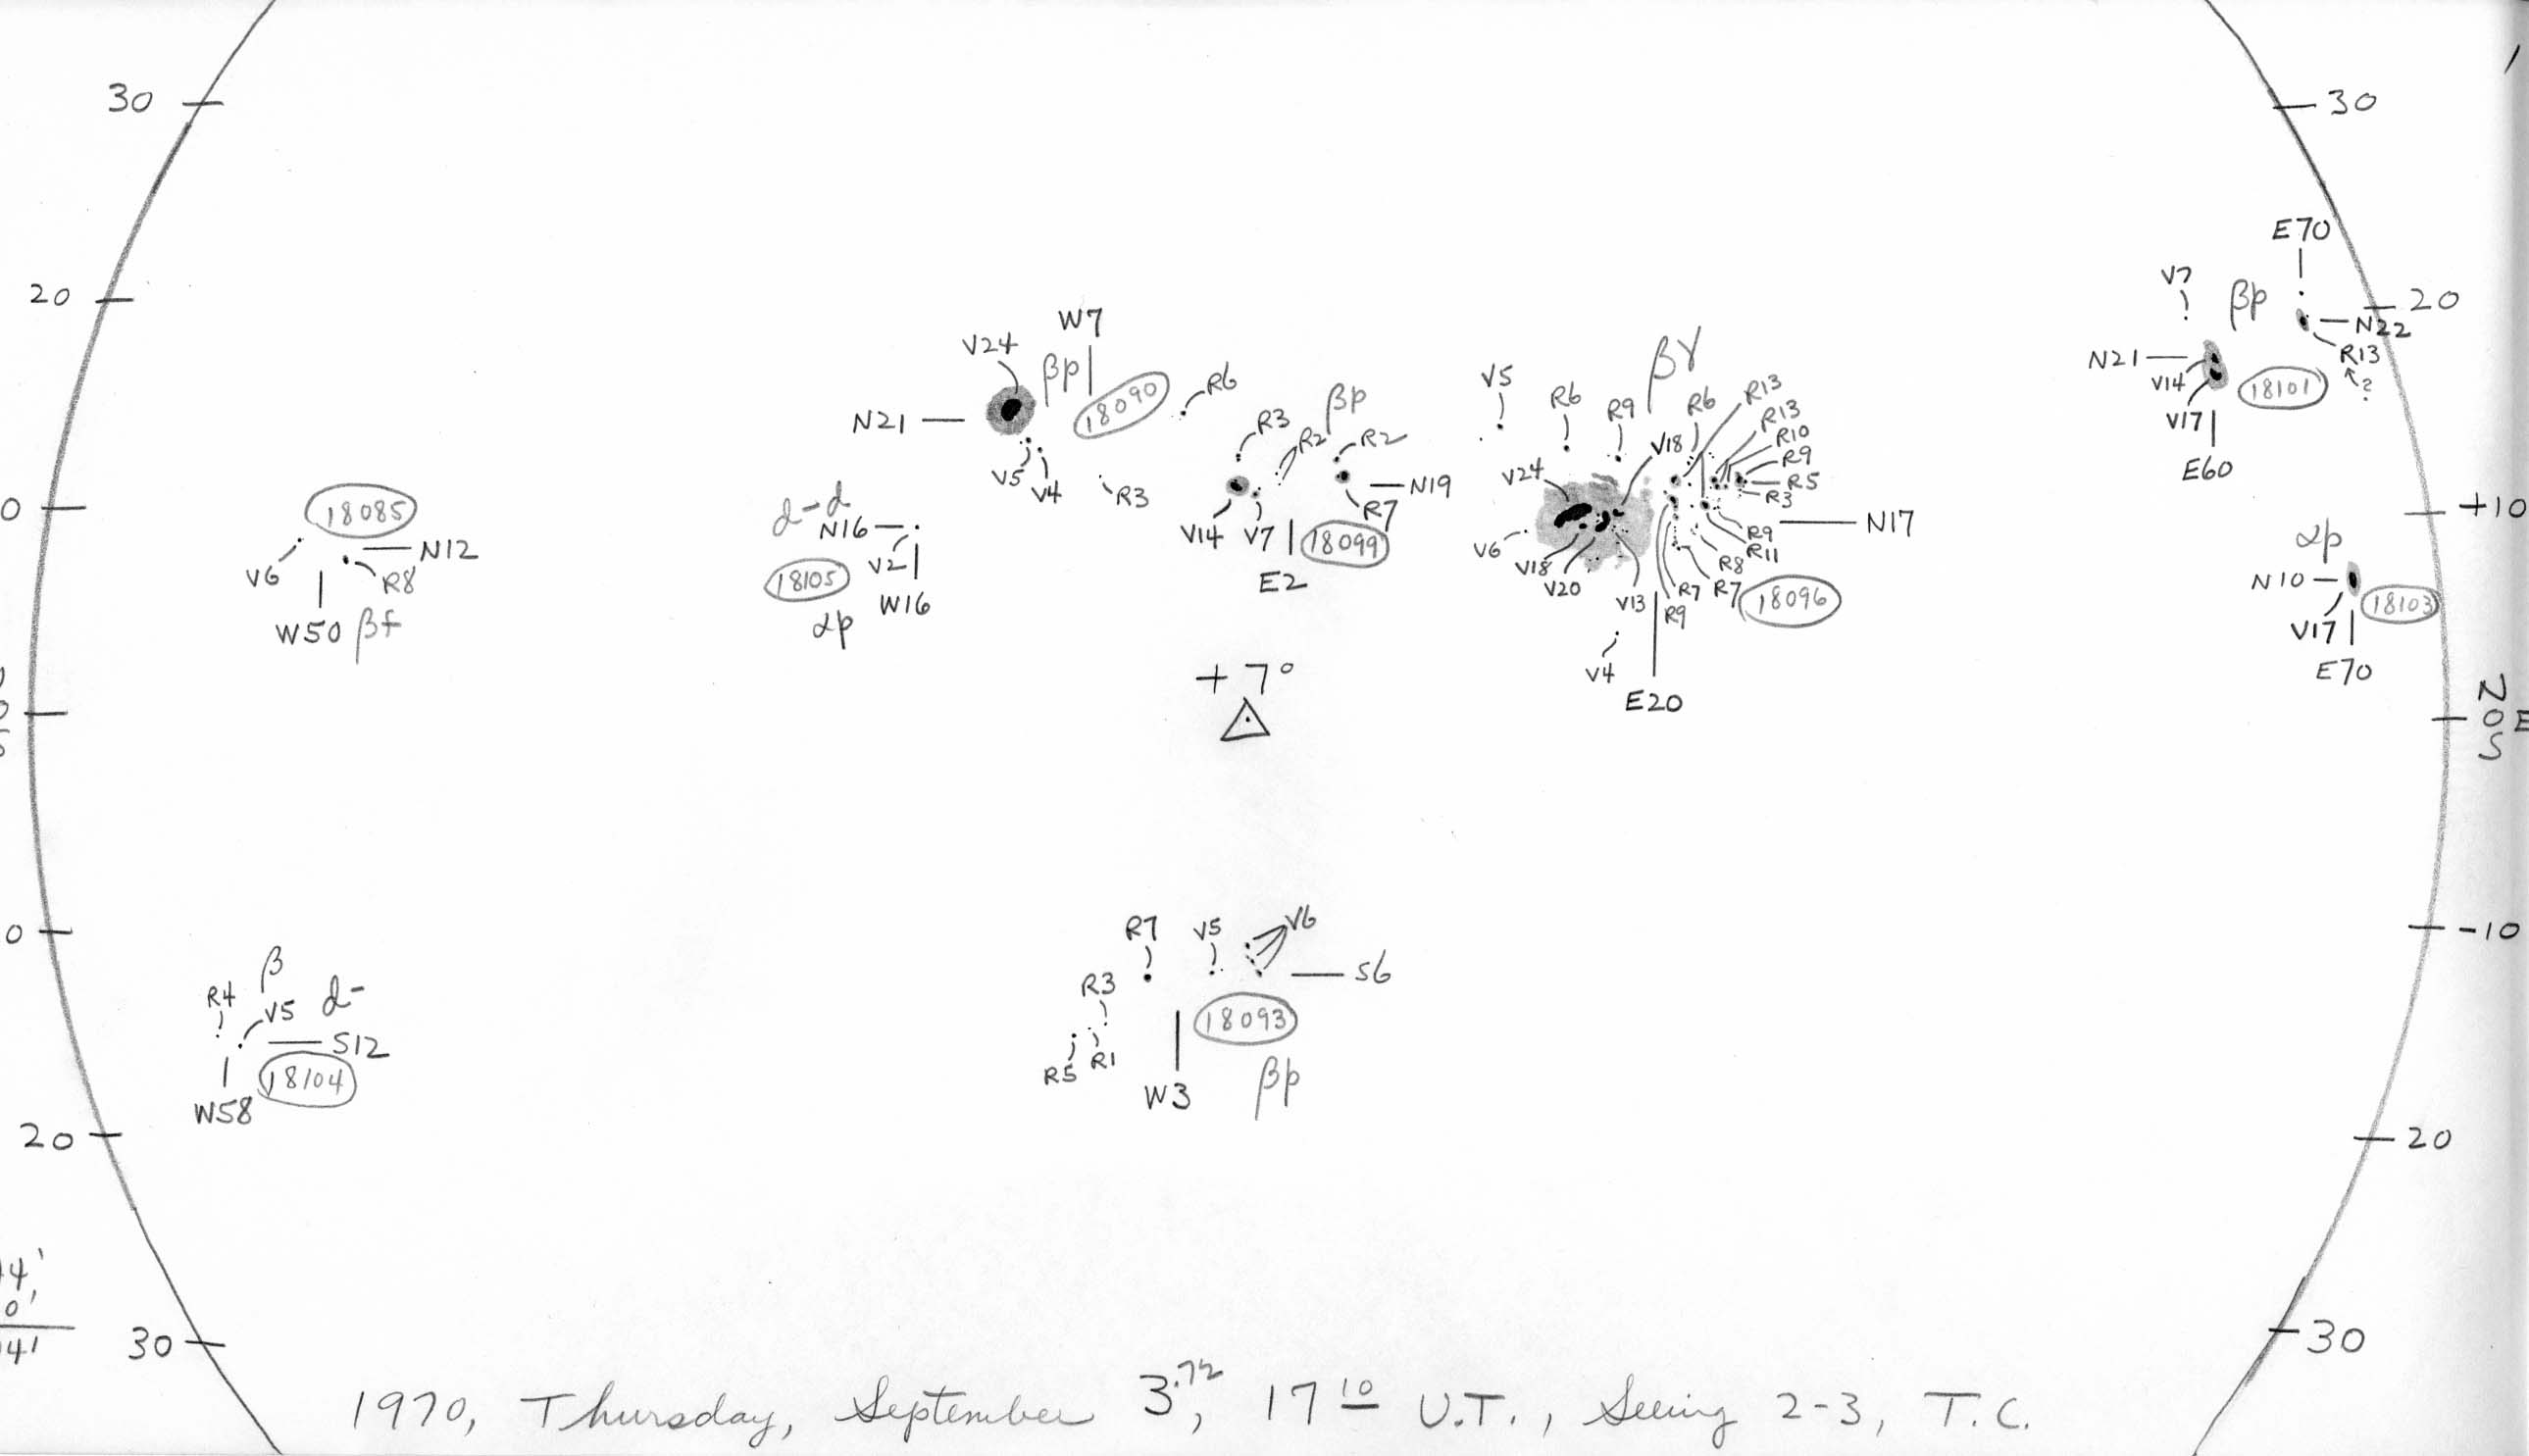 30
30
E70
V7
βp
20
20
N22
R13
?
N21
V14
18101
V17
E60
W7
V24
βp
18090
R6
N21
V5
V4
R3
R3
R2
βp
R2
N19
R7
V14
V7
18099
E2
βγ
V5
R6
R9
R6
R13
R13
R10
R9
R5
R3
V18
V24
N17
R9
R11
R8
V6
V18
V20
V13
R9
R7
R7
18096
V4
E20
0
+10
18085
N12
V6
R8
W50 βf
d-d
N16
18105
V2
W16
αp
αp
N10
18103
V17
E70
+7°
N
0 E
S
0
-10
β
R4
V5
d-
S12
18104
W58
R7
V5
V6
S6
R3
18093
R5
R1
W3
βp
20
20
14'
0'
41
30
30
1970, Thursday, September 3.72, 17 10 U.T., Seeing 2-3, T.C.